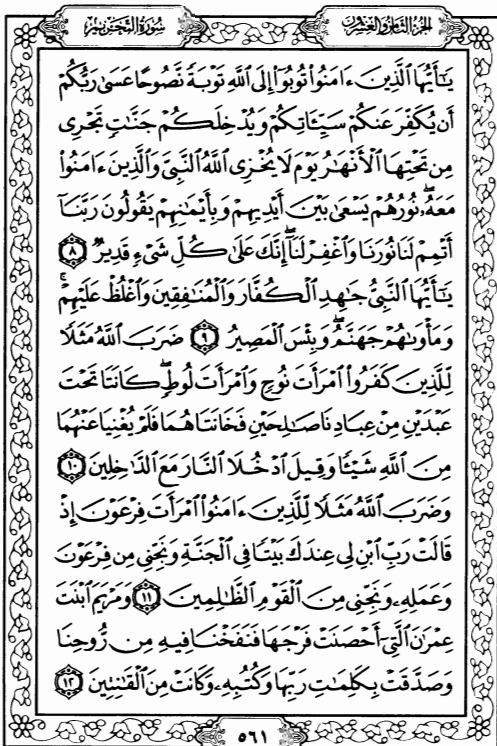 سورة التحريم
الجزء الثامن والعشرون
يَٰٓأَيُّهَا ٱلَّذِينَ ءَامَنُوا۟ تُوبُوٓا۟ إِلَى ٱللَّهِ تَوْبَةً نَّصُوحًا عَسَىٰ رَبُّكُمْ
أَن يُكَفِّرَ عَنكُمْ سَيِّـَٔاتِكُمْ وَيُدْخِلَكُمْ جَنَّٰتٍ تَجْرِى
مِن تَحْتِهَا ٱلْأَنْهَٰرُ يَوْمَ لَا يُخْزِى ٱللَّهُ ٱلنَّبِىَّ وَٱلَّذِينَ ءَامَنُوا۟
مَعَهُۥ ۖ نُورُهُمْ يَسْعَىٰ بَيْنَ أَيْدِيهِمْ وَبِأَيْمَٰنِهِمْ يَقُولُونَ رَبَّنَآ
أَتْمِمْ لَنَا نُورَنَا وَٱغْفِرْ لَنَآ ۖ إِنَّكَ عَلَىٰ كُلِّ شَىْءٍ قَدِيرٌ ٨
يَٰٓأَيُّهَا ٱلنَّبِىُّ جَٰهِدِ ٱلْكُفَّارَ وَٱلْمُنَٰفِقِينَ وَٱغْلُظْ عَلَيْهِمْ ۚ
وَمَأْوَىٰهُمْ جَهَنَّمُ ۖ وَبِئْسَ ٱلْمَصِيرُ ٩ ضَرَبَ ٱللَّهُ مَثَلًا
لِّلَّذِينَ كَفَرُوا۟ ٱمْرَأَتَ نُوحٍ وَٱمْرَأَتَ لُوطٍ ۖ كَانَتَا تَحْتَ
عَبْدَيْنِ مِنْ عِبَادِنَا صَٰلِحَيْنِ فَخَانَتَاهُمَا فَلَمْ يُغْنِيَا عَنْهُمَا
مِنَ ٱللَّهِ شَيْـًٔا وَقِيلَ ٱدْخُلَا ٱلنَّارَ مَعَ ٱلدَّٰخِلِينَ ١٠
وَضَرَبَ ٱللَّهُ مَثَلًا لِّلَّذِينَ ءَامَنُوا۟ ٱمْرَأَتَ فِرْعَوْنَ إِذْ
قَالَتْ رَبِّ ٱبْنِ لِى عِندَكَ بَيْتًا فِى ٱلْجَنَّةِ وَنَجِّنِى مِن فِرْعَوْنَ
وَعَمَلِهِۦ وَنَجِّنِى مِنَ ٱلْقَوْمِ ٱلظَّٰلِمِينَ ١١ وَمَرْيَمَ ٱبْنَتَ
عِمْرَٰنَ ٱلَّتِىٓ أَحْصَنَتْ فَرْجَهَا فَنَفَخْنَا فِيهِ مِن رُّوحِنَا
وَصَدَّقَتْ بِكَلِمَٰتِ رَبِّهَا وَكُتُبِهِۦ وَكَانَتْ مِنَ ٱلْقَٰنِتِينَ ١٢
٥٦١